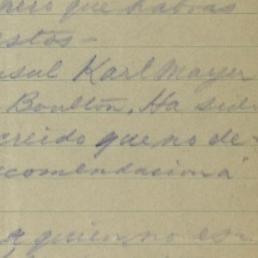 que habras
estos-
sul Karl Mayer
Boulton. Ha sido
creido que no de-
comendacion a
a quien no es